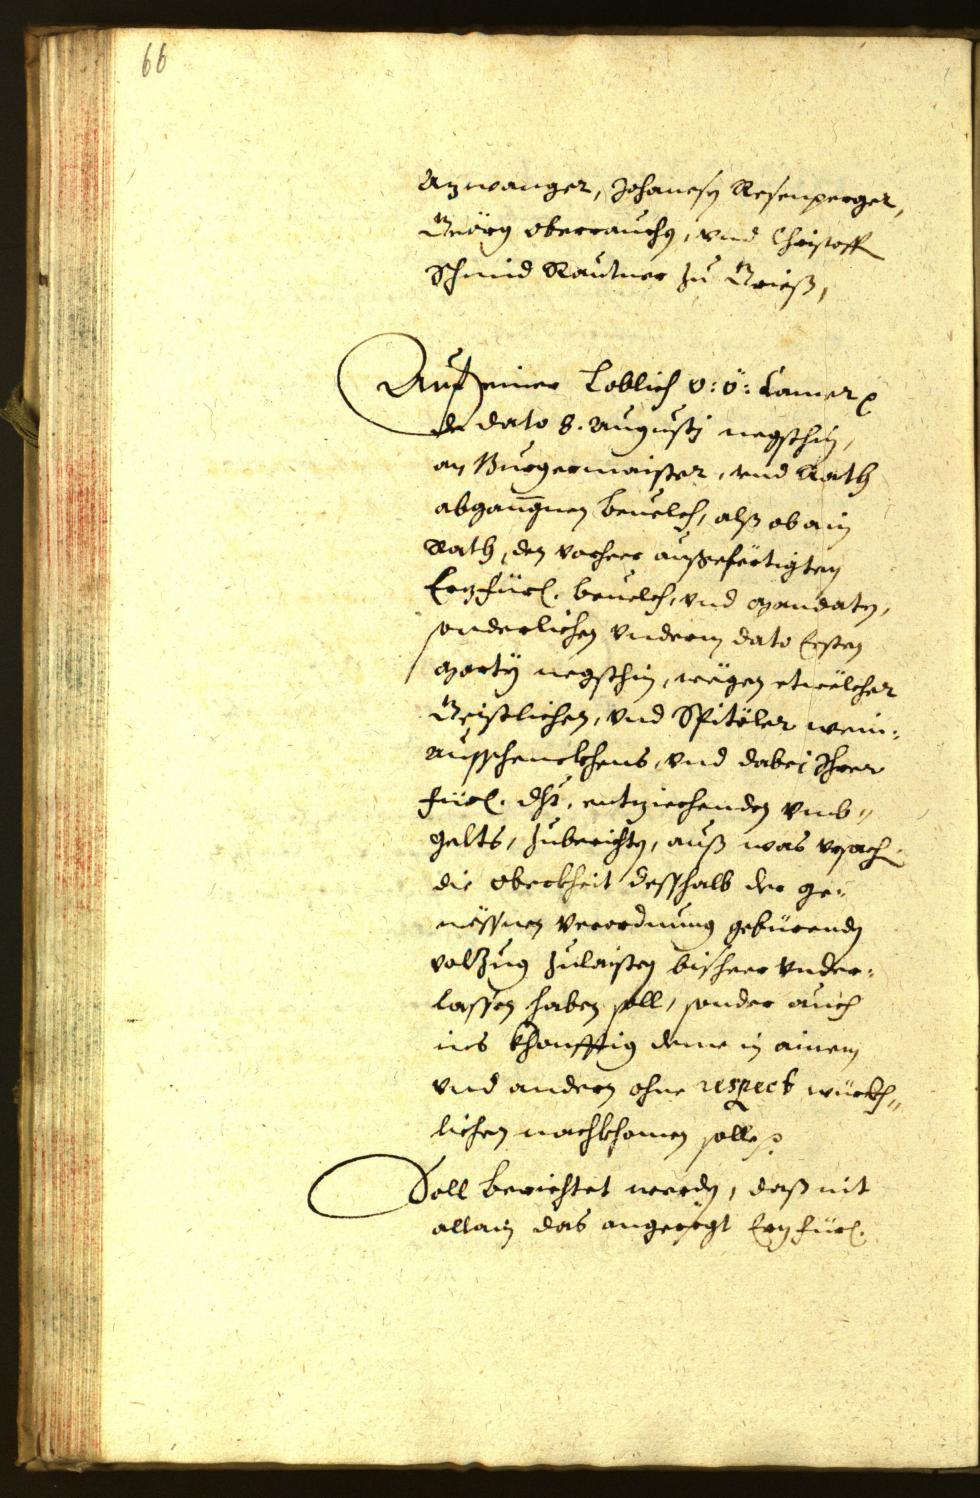 66
Anzwanger, Johanesn Resenperger,
Geörg Oberrauch, vnd Christoff
Schmid Rautner zu Grieß,
Auf einer Loblich O: Ö: Camer
de dato 8. Augustj negsthin,
an Burgermaister, vnd Rath
abgangnen beuelch, alß ob ain
Rath, den vorheer außgefertigten
Erzfürl. beuelch, vnd mandatn,
sonderlichen vnderm dato Ersten
Martÿ negsthin, wegen etwelcher
Geistlichen, vnd Spitäler wein-
ausschenckhens, vnd dabej Ihrer
fürl. Dht. entziechenden vmb-
gelts, zuberichtn, auß was vrsach
die Oberkheit desshalb der ge-
messnen verordnung gebürendn
volzug zulaisten bisheer vnder-
lassen haben soll, sonder auch
ins khonfftig deme in ainem
vnd andern ohne respect würkh-
lichen nachkhomen solle
Soll berichtet werdn, daß nit
allain das angeregt Erzfürl.